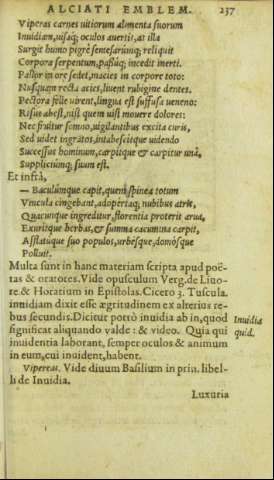 ALCIATI EMBLEM. 237
Viperas carnes uitiorum alimenta suorum
Inuidiam, uisaq; oculos auertit, at illa
Surgit humo pigrè semesarumq; reliquit
Corpora serpentum, passuq; incedit inerti.
Pallor in ore sedet, macies in corpore toto:
Nusquàm recta acies, liuent rubigine dentes.
Pectora felle uirent, lingua est suffusa ueneno:
Risus abest, nisi quem uisi mouere dolores:
Nec fruitur somno, uigilantibus excita curis,
Sed uidet ingratos, intabescitque uidendo
Successus hominum, carpitque & carpitur unà,
Suppliciumq; suum est.
Et infrà,
— Baculumque capit, quem spinea totum
Vincula cingebant, adopertaq; nubibus atris,
Quacunque ingreditur, florentia proterit arua,
Exuritque herbas, & summa cacumina carpit,
Afflatuque suo populos, urbesque, domosque
Polluit.
Multa sunt in hanc materiam scripta apud poë-
tas & oratores. Vide opusculum Verg. de Liuo-
re & Horatium in Epistolas. Cicero 3. Tuscula.
inuidiam dixit esse ægritudinem ex alterius re-
bus secundis. Dicitur porrò inuidia ab in, quod
significat aliquando valde: & video. Quia qui
inuidentia laborant, semper oculos & animum
in eum, cui inuident, habent.
Inuidia
quid.
Vipereas. Vide diuum Basilium in priu. libel-
li de Inuidia.
Luxuria